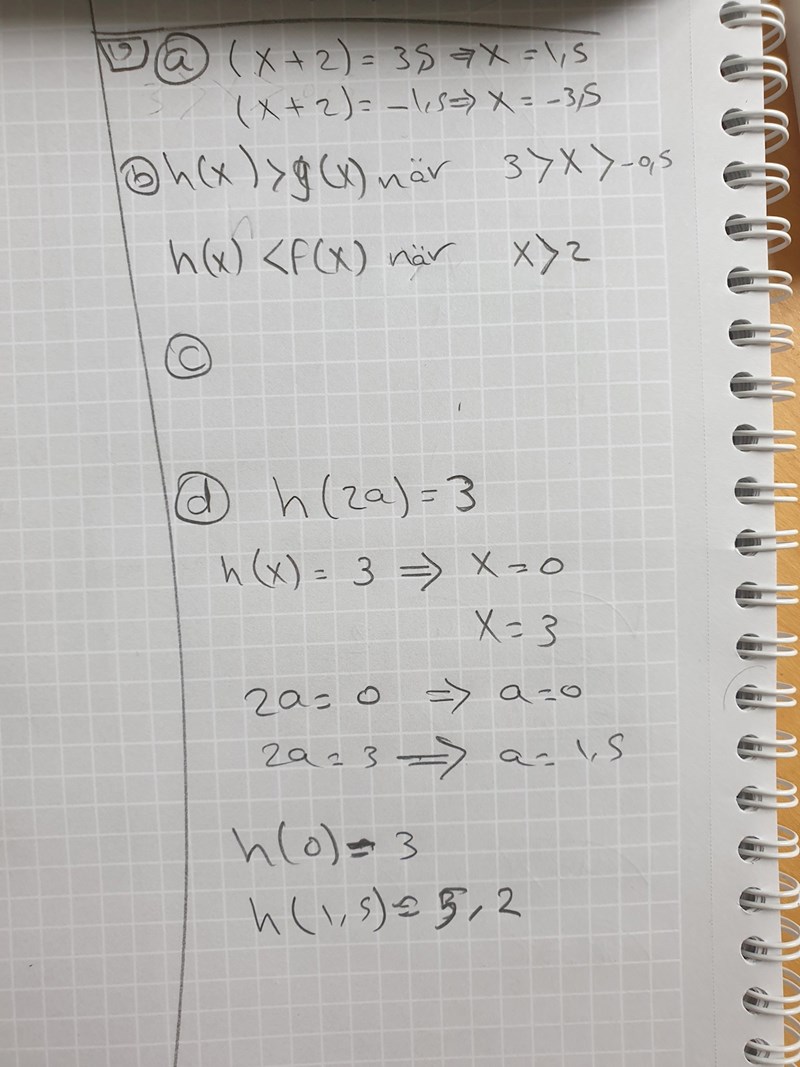 19 a (x+2) = 3,5 ⇒ x = 1,5
(x+2) = -1,5 ⇒ x = -3,5
b h(x) > g(x) när 3 > x > -0,5
h(x) < f(x) när x > 2
c
d h(2a) = 3
h(x) = 3 ⇒ x = 0
x = 3
2a = 0 ⇒ a = 0
2a = 3 ⇒ a = 1,5
h(0) = 3
h(1,5) = 5,2